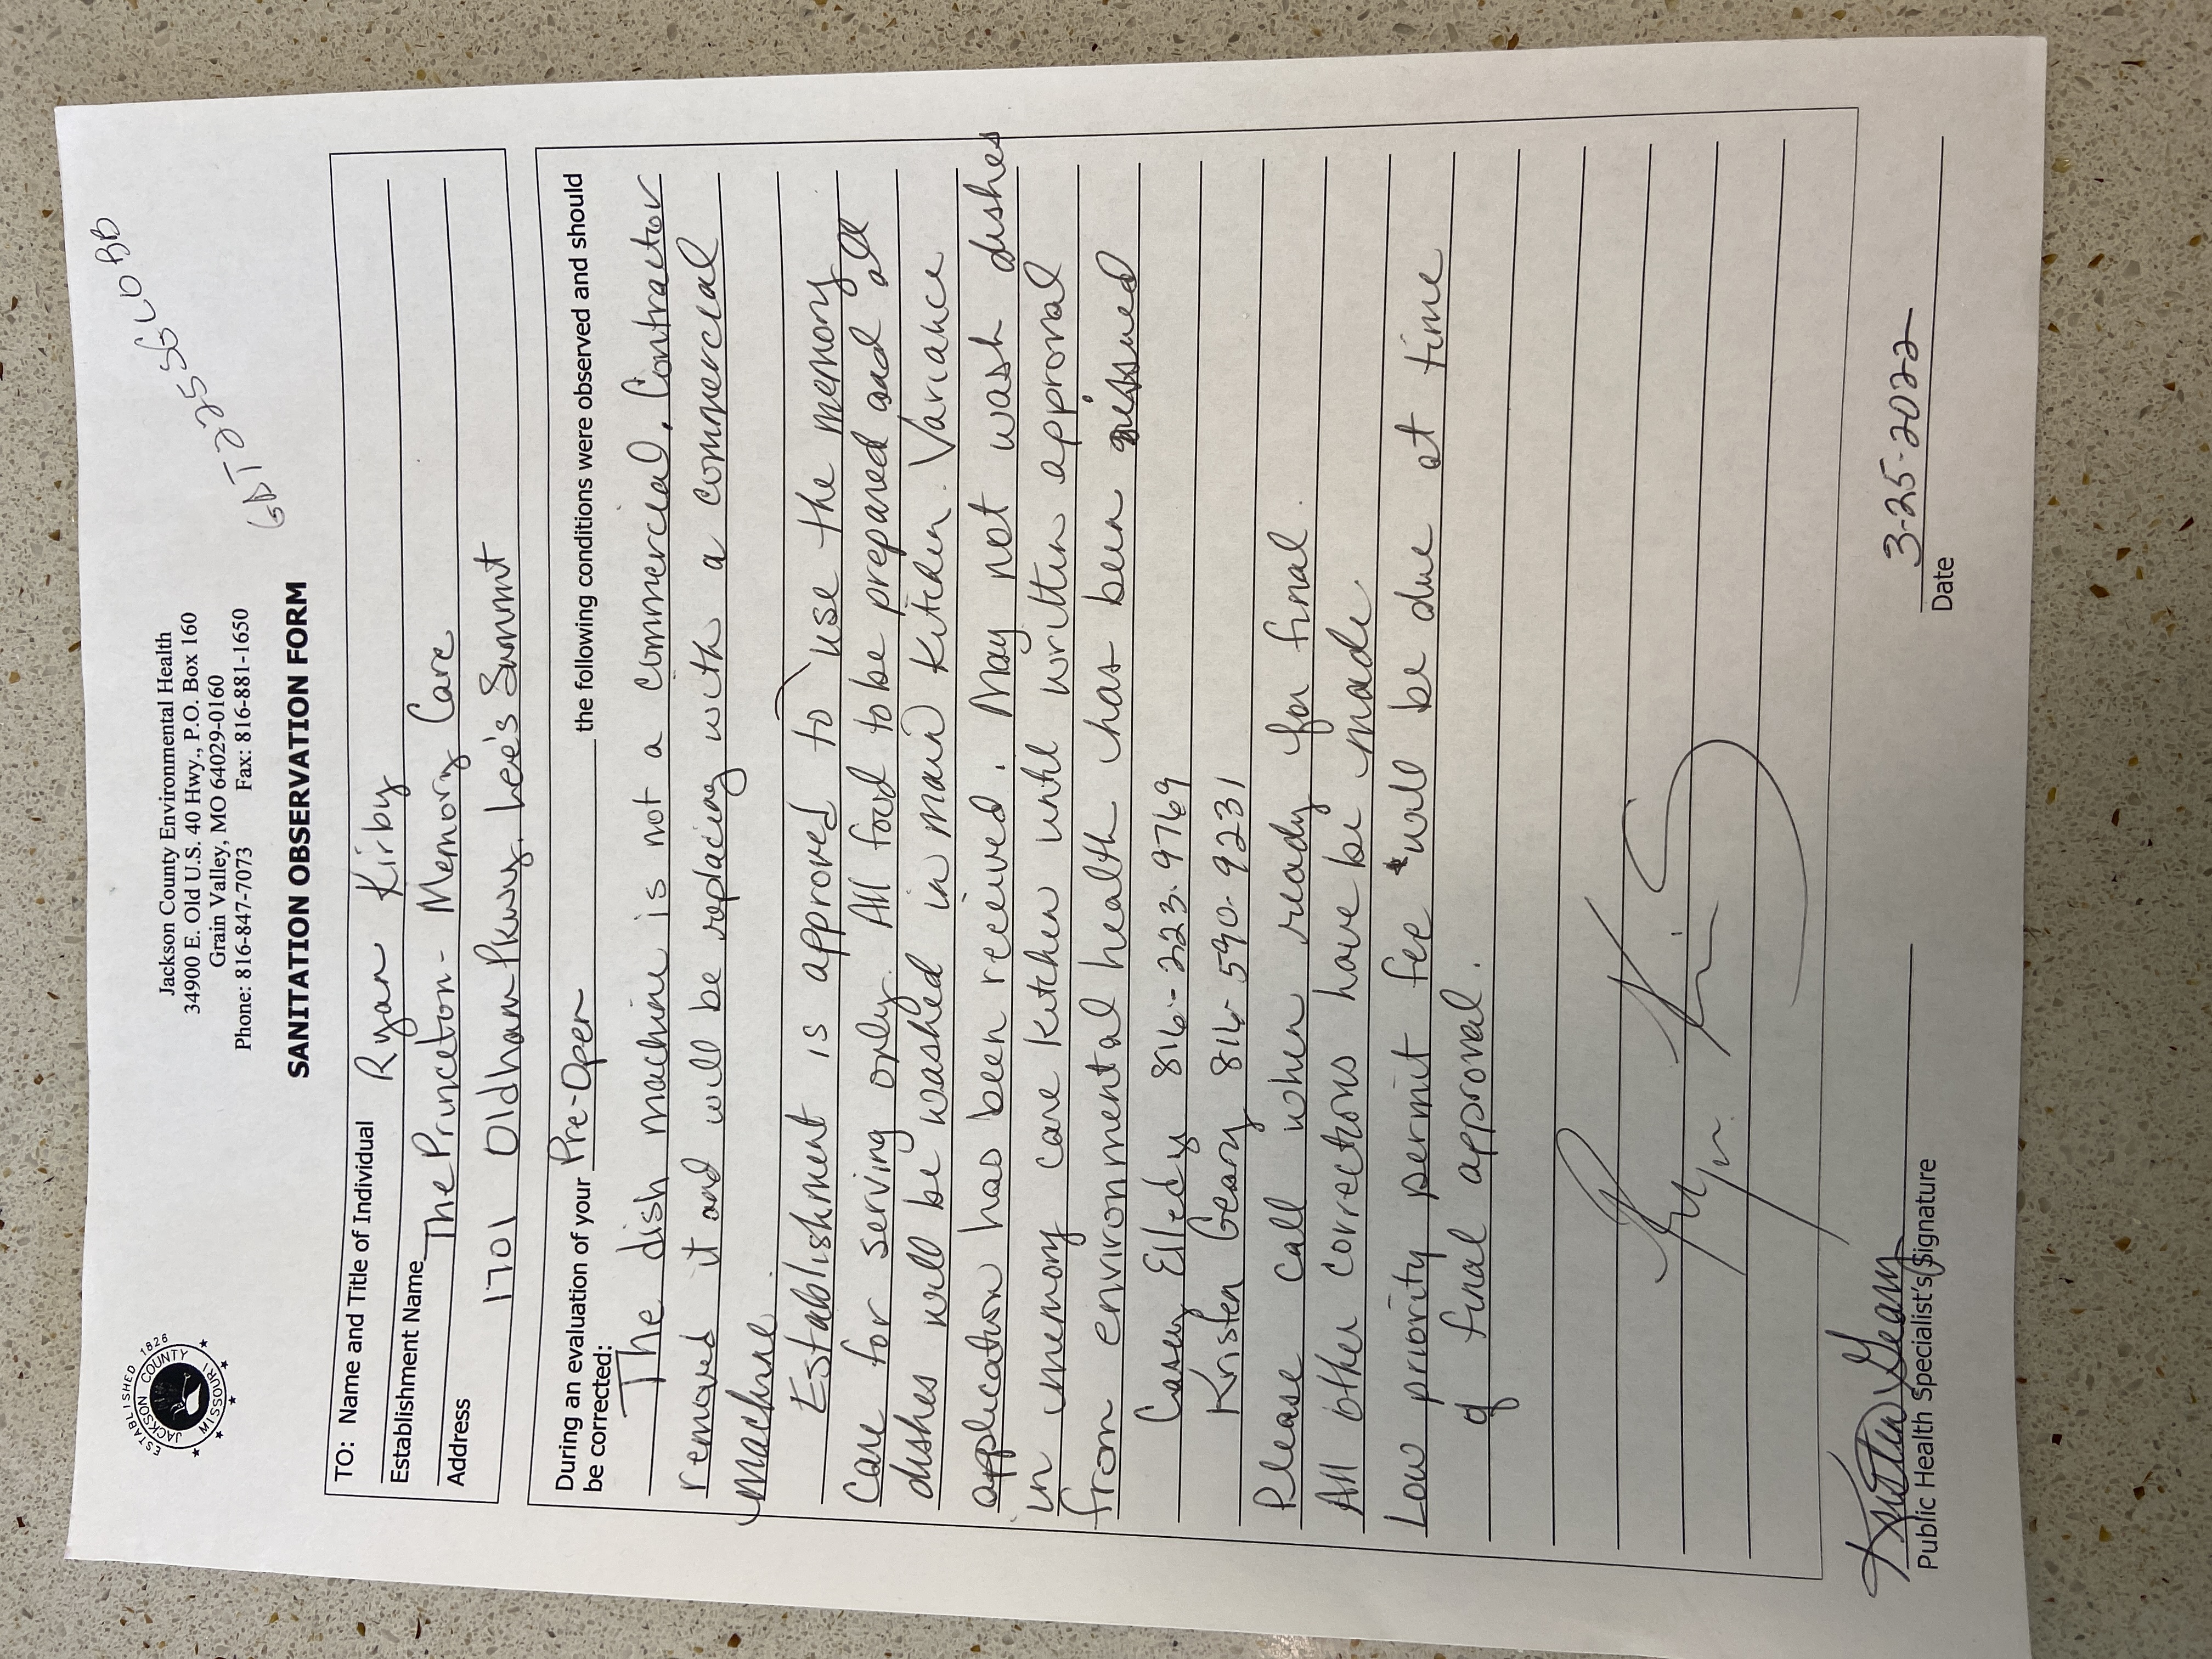 ESTABLISHED 1826
JACKSON COUNTY
MISSOURI
Jackson County Environmental Health
34900 E. Old U.S. 40 Hwy., P.O. Box 160
Grain Valley, MO 64029-0160
Phone: 816-847-7073 Fax: 816-881-1650
SANITATION OBSERVATION FORM
TO: Name and Title of Individual Ryan Kirby
Establishment Name The Princeton - Memory Care
Address 1701 Oldham Pkwy, Lee's Summit
During an evaluation of your Pre-Open the following conditions were observed and should
be corrected:
The dish machine is not a commercial. Contractor
removed it and will be replacing with a commercial
machine.
Establishment is approved to use the memory
care for serving only. All food to be prepared and all
dishes will be washed in main kitchen. Variance
application has been received. May not wash dishes
in memory care kitchen until written approval
from environmental health has been issued
Casey Elledy 816-223-9769
Kristen Geary 816-590-9231
Please call when ready for final.
All other corrections have be made.
Low priority permit fee will be due at time
of final approval.
Kristen Geary
Public Health Specialist's Signature
3-25-2022
Date